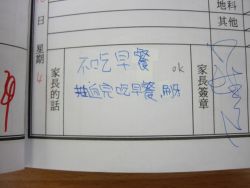 地科
其他
日
星期
4
家長的話
不吃早餐
ok
完吃早餐,刷牙
家長簽章